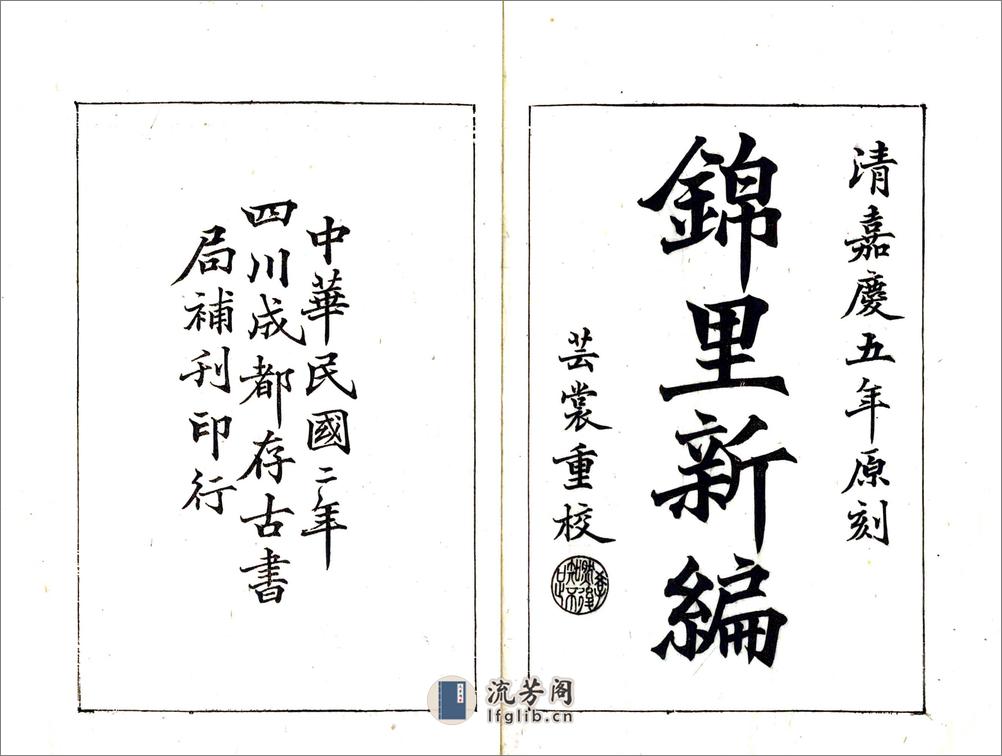 清嘉慶五年原刻
錦里新編
芸裳重校
中華民國二年
四川成都存古書
局補刊印行
流芳阁
lfglib.cn